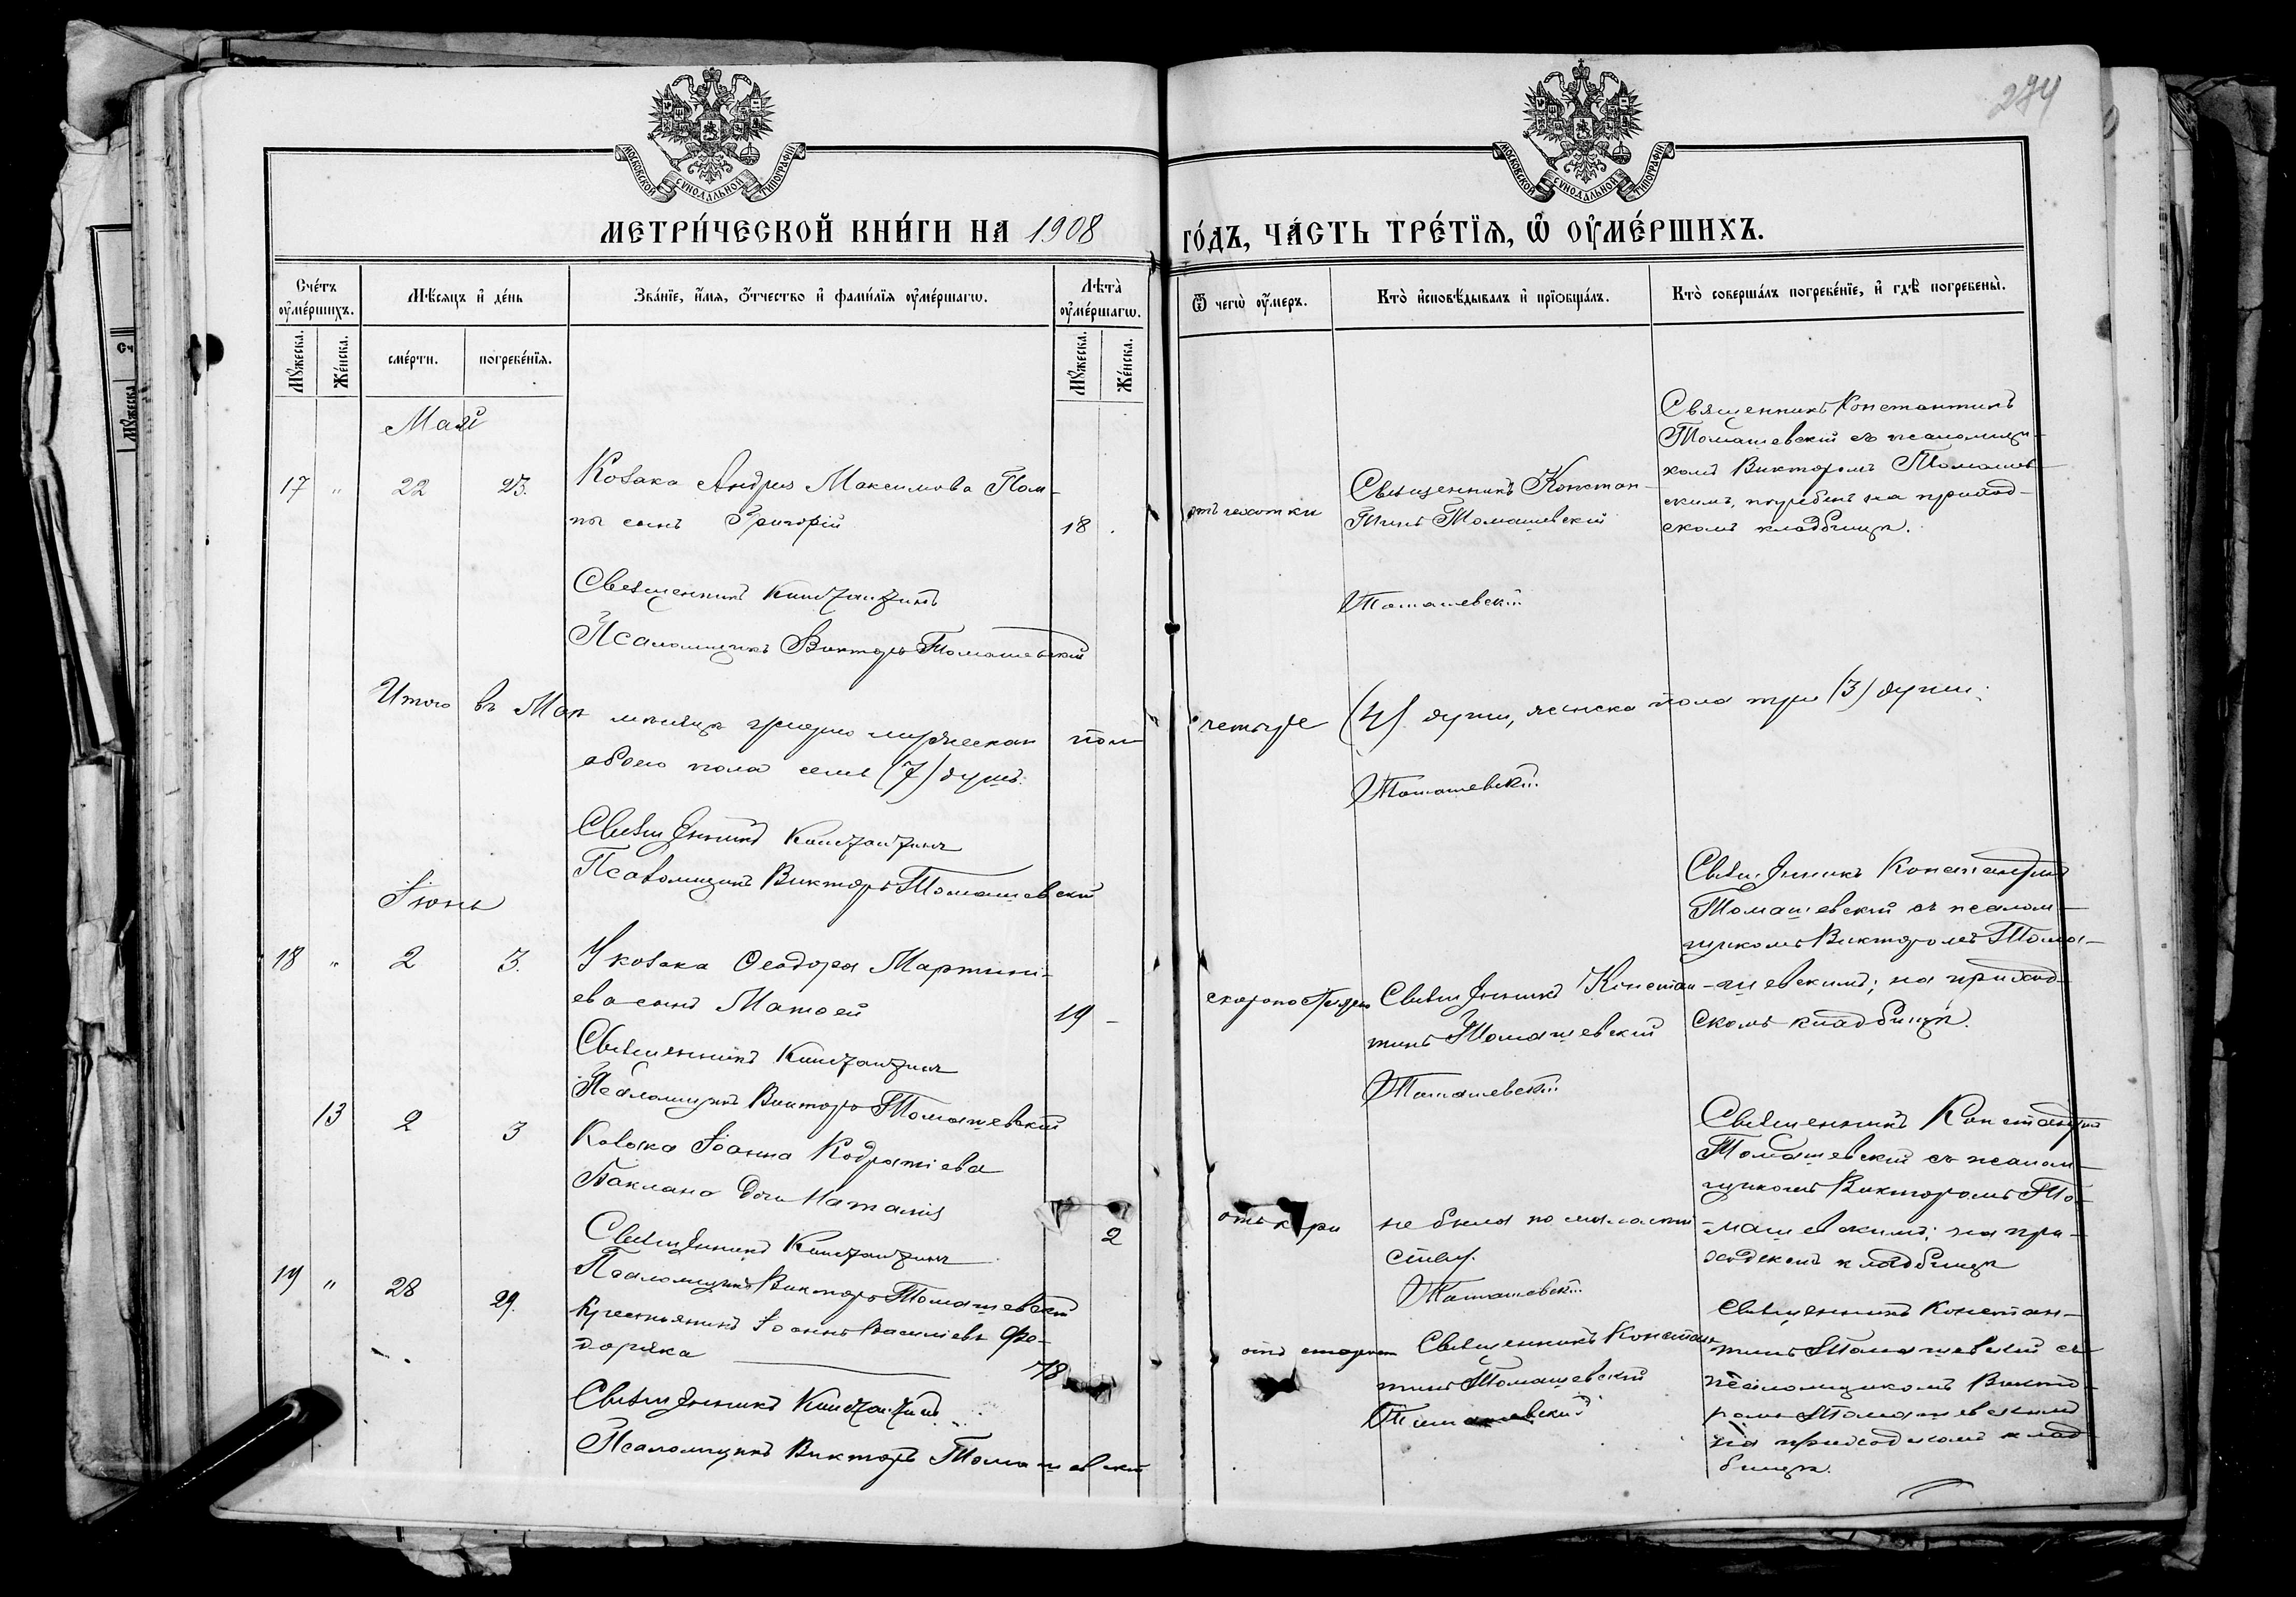 274
МОСКОВСКОЙ СѴНОДАЛЬНОЙ ТИПОГРАФІИ
МОСКОВСКОЙ СѴНОДАЛЬНОЙ ТИПОГРАФІИ
МЕТРИ́ЧЕСКОЙ КНИ́ГИ НА 1908
ГО́ДЪ, ЧА́СТЬ ТРЕ́ТЇѦ, Ѡ ОУ҆МЕ́РШИХЪ.
Сче́тъ оу҆ме́ршихъ.
Мѣ́сяцъ и҆ де́нь
Зва́нїе, и҆́мя, ѻ҆́тчество и҆ фами́лїя оу҆ме́ршагѡ.
Лѣта̀ оу҆ме́ршагѡ.
Мꙋ́жеска.
Же́нска.
сме́рти.
погребе́нїя.
Мꙋ́жеска.
Же́нска.
Ѿ чегѡ̀ оу҆́меръ.
Кто̀ и҆сповѣ́дывалъ и҆ прїѻбща́лъ.
Кто̀ соверша́лъ погребе́нїе, и҆ гдѣ̀ погребены̀.
Май
17 " 22 23.
Козака Андрея Максимова Пом-
пы сынъ Григорій
18
отъ чахотки
Священникъ Констан-
тинъ Томашевскій
Священникъ Константинъ
Томашевскій съ псаломщи-
комъ Викторомъ Томашев-
скимъ, погребенъ на приход-
скомъ кладбищѣ.
Священникъ Константинъ
Томашевскій
Псаломщикъ Викторъ Томашевскій
Итого въ Маѣ мѣсяцѣ умерло мужеска пола
четыре (4) души, женска пола три (3) души;
обоего пола семь (7) душъ.
Священникъ Константинъ
Томашевскій
Псаломщикъ Викторъ Томашевскій
Іюнь
18 " 2 3.
У козака Ѳеодора Мартині-
ева сынъ Матѳей
19 -
скоропостижно
Священникъ Констан-
тинъ Томашевскій
Священникъ Константинъ
Томашевскій съ псалом-
щикомъ Викторомъ Тома-
шевскимъ; на приход-
скомъ кладбищѣ.
Священникъ Константинъ
Томашевскій
Псаломщикъ Викторъ Томашевскій
13 2 3
Козака Іоанна Кодратіева
Баклана дочь Наталія
2
отъ кори
не была по малолѣт-
ству.
Священникъ Константинъ
Томашевскій съ псалом-
щикомъ Викторомъ То-
машевскимъ; на при-
ходскомъ кладбищѣ
Священникъ Константинъ
Томашевскій
Псаломщикъ Викторъ Томашевскій
19 " 28 29.
Крестьянинъ Іоаннъ Василіевъ Ѳе-
доряка
78
отъ старости
Священникъ Констан-
тинъ Томашевскій
Священникъ Констан-
тинъ Томашевскій съ
псаломщикомъ Викто-
ромъ Томашевскимъ
на приходскомъ клад-
бищѣ.
Священникъ Константинъ
Томашевскій
Псаломщикъ Викторъ Томашевскій